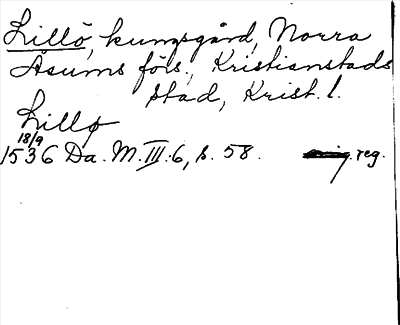 Lillö, kungsgård, Norra
Åsums förs., Kristianstads
stad, Krist. l.
Lillø
18/9
1536 Da. M. III. 6, s. 58. reg.